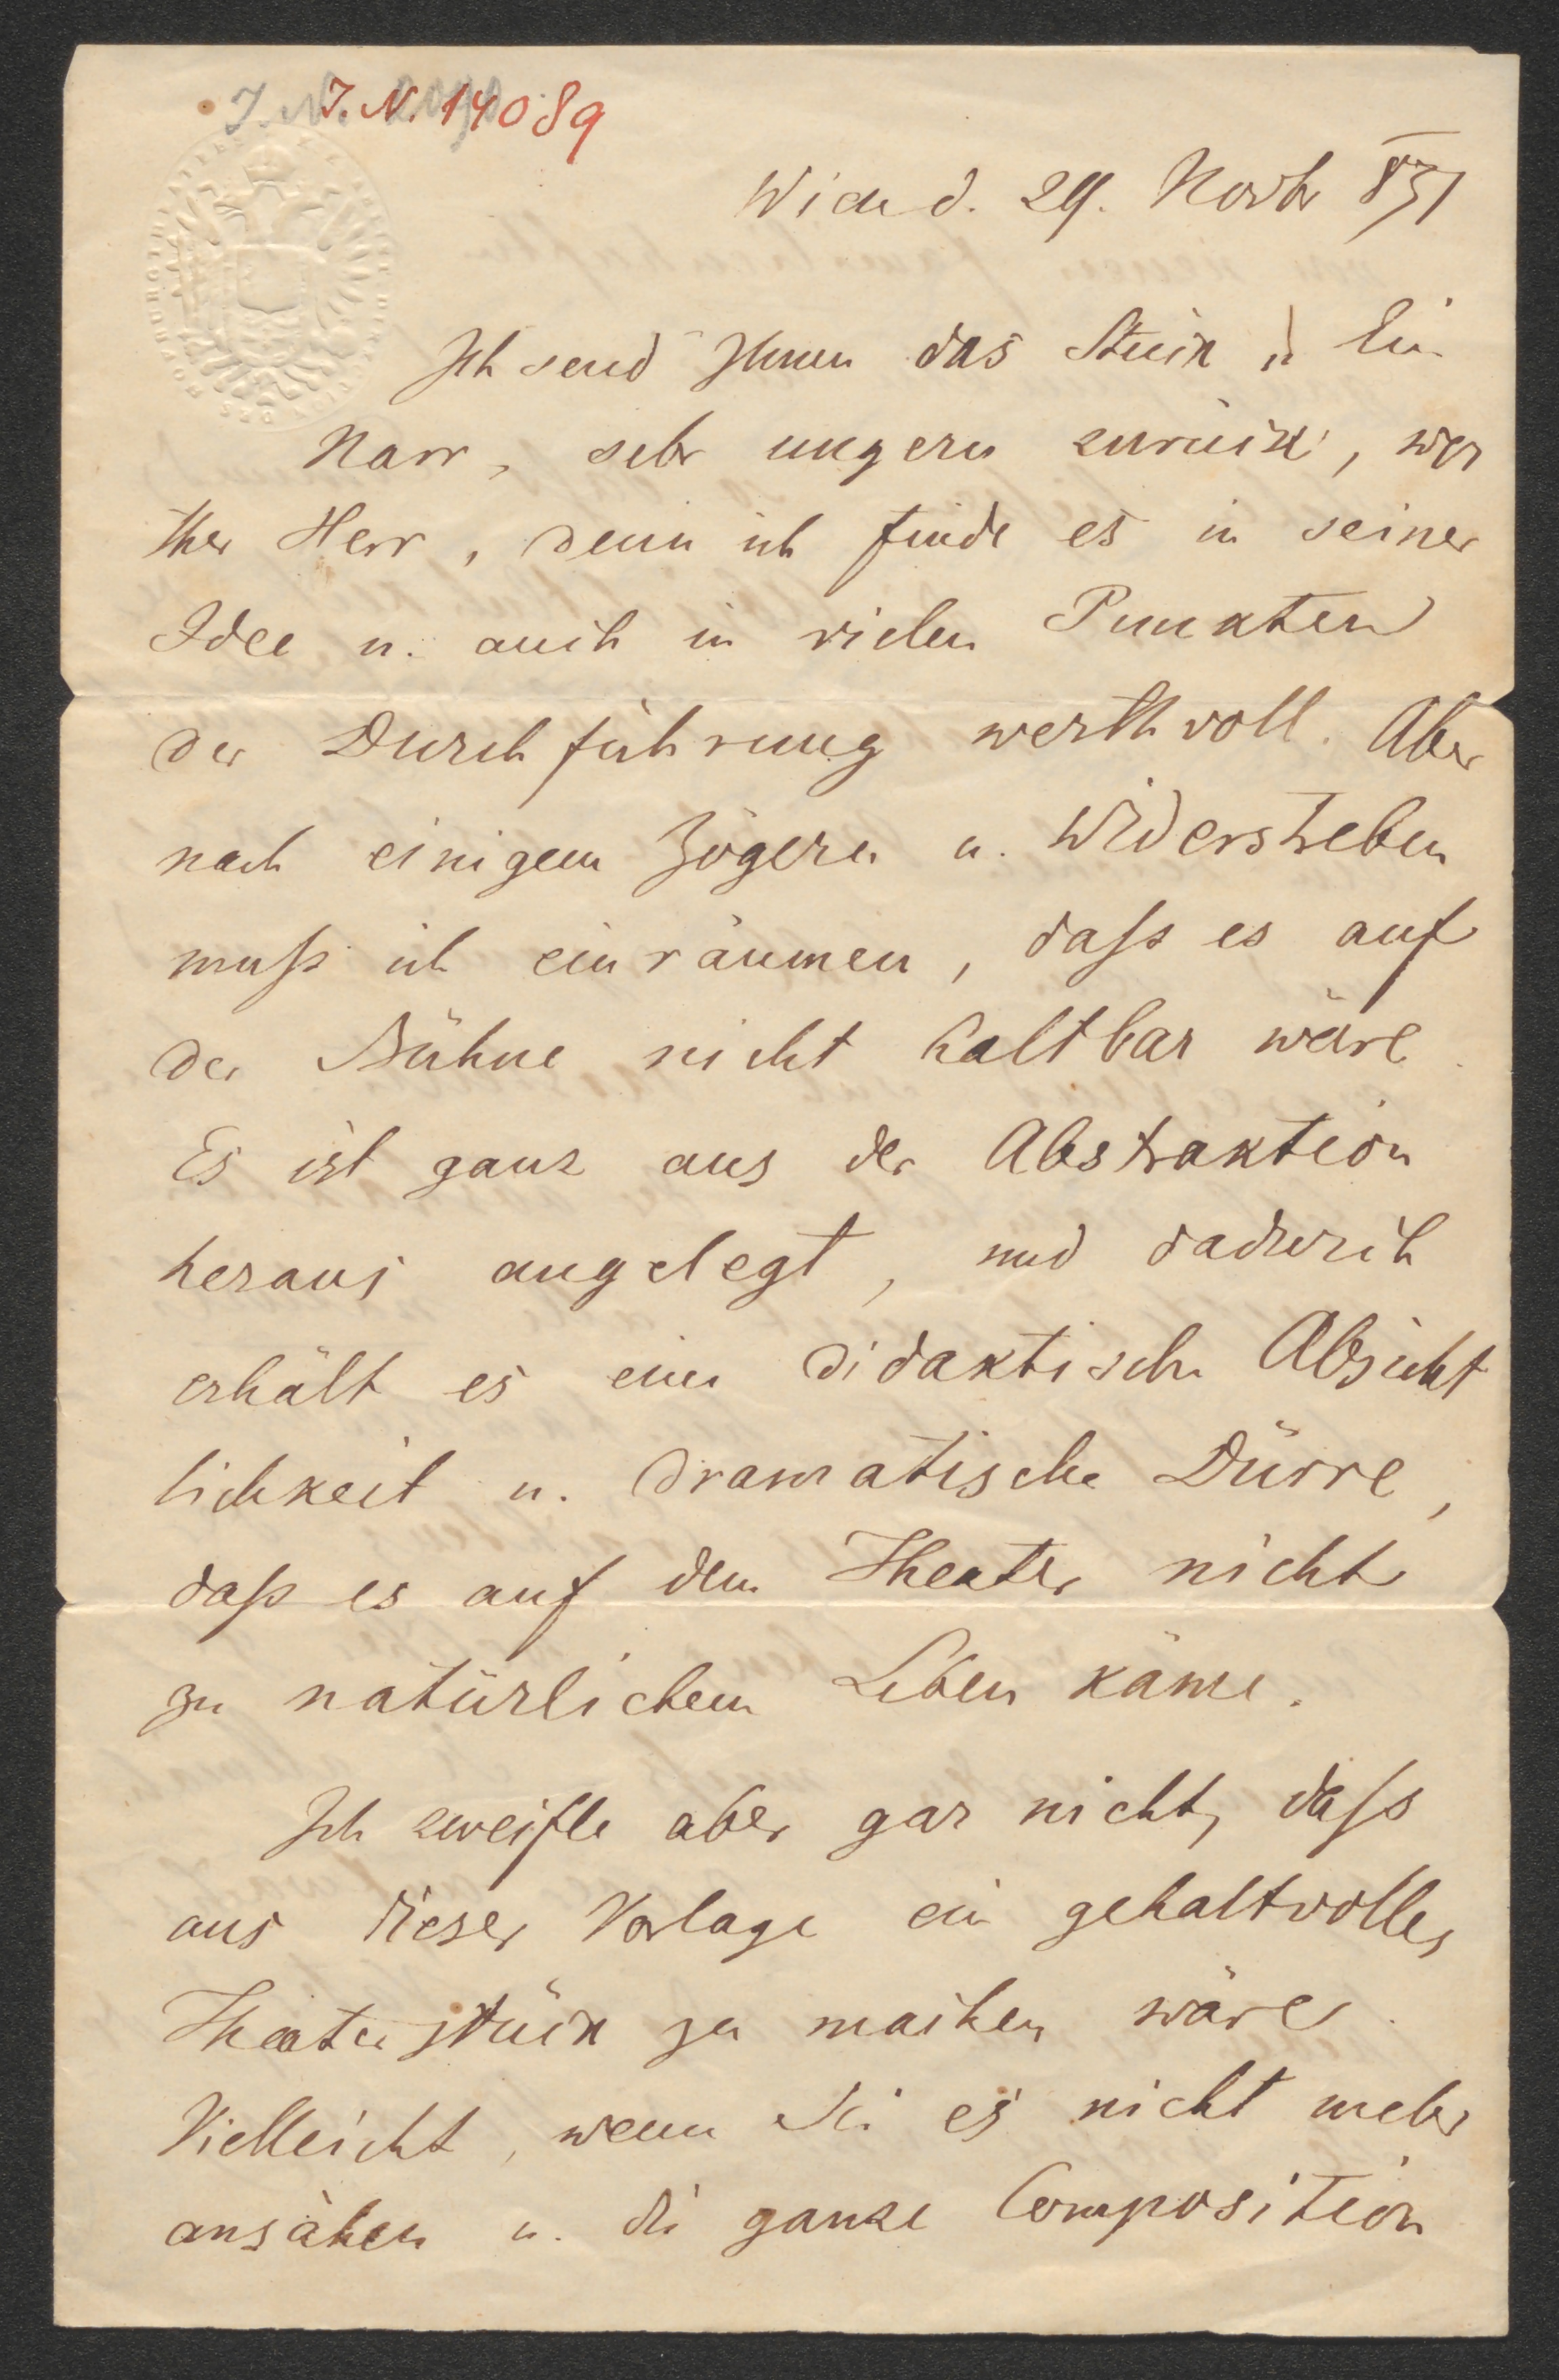 J. N. 14089
Wien d. 29. Novbr 851
Ich send Ihnen das Stück „Ein
Narr„ sehr ungern zurück, wer
ther Herr, denn ich finde es in seiner
Idee u. auch in vielen Punkten
der Durchführung werthvoll. Aber
nach einigem Zögern u. Widerstreben
muß ich einräumen, daß es auf
der Bühne nicht haltbar wäre.
Es ist ganz aus der Abstraktion
heraus angelegt, und dadurch
erhält es eine didaktische Absicht
lichkeit u. dramatische Dürre,
daß es auf dem Theater nicht
zu natürlichem Leben käme.
Ich zweifle aber gar nicht, daß
aus dieser Vorlage ein gehaltvolles
Theaterstück zu machen wäre.
Vielleicht, wenn Sie es nicht mehr
ansähen u. die ganze Composition